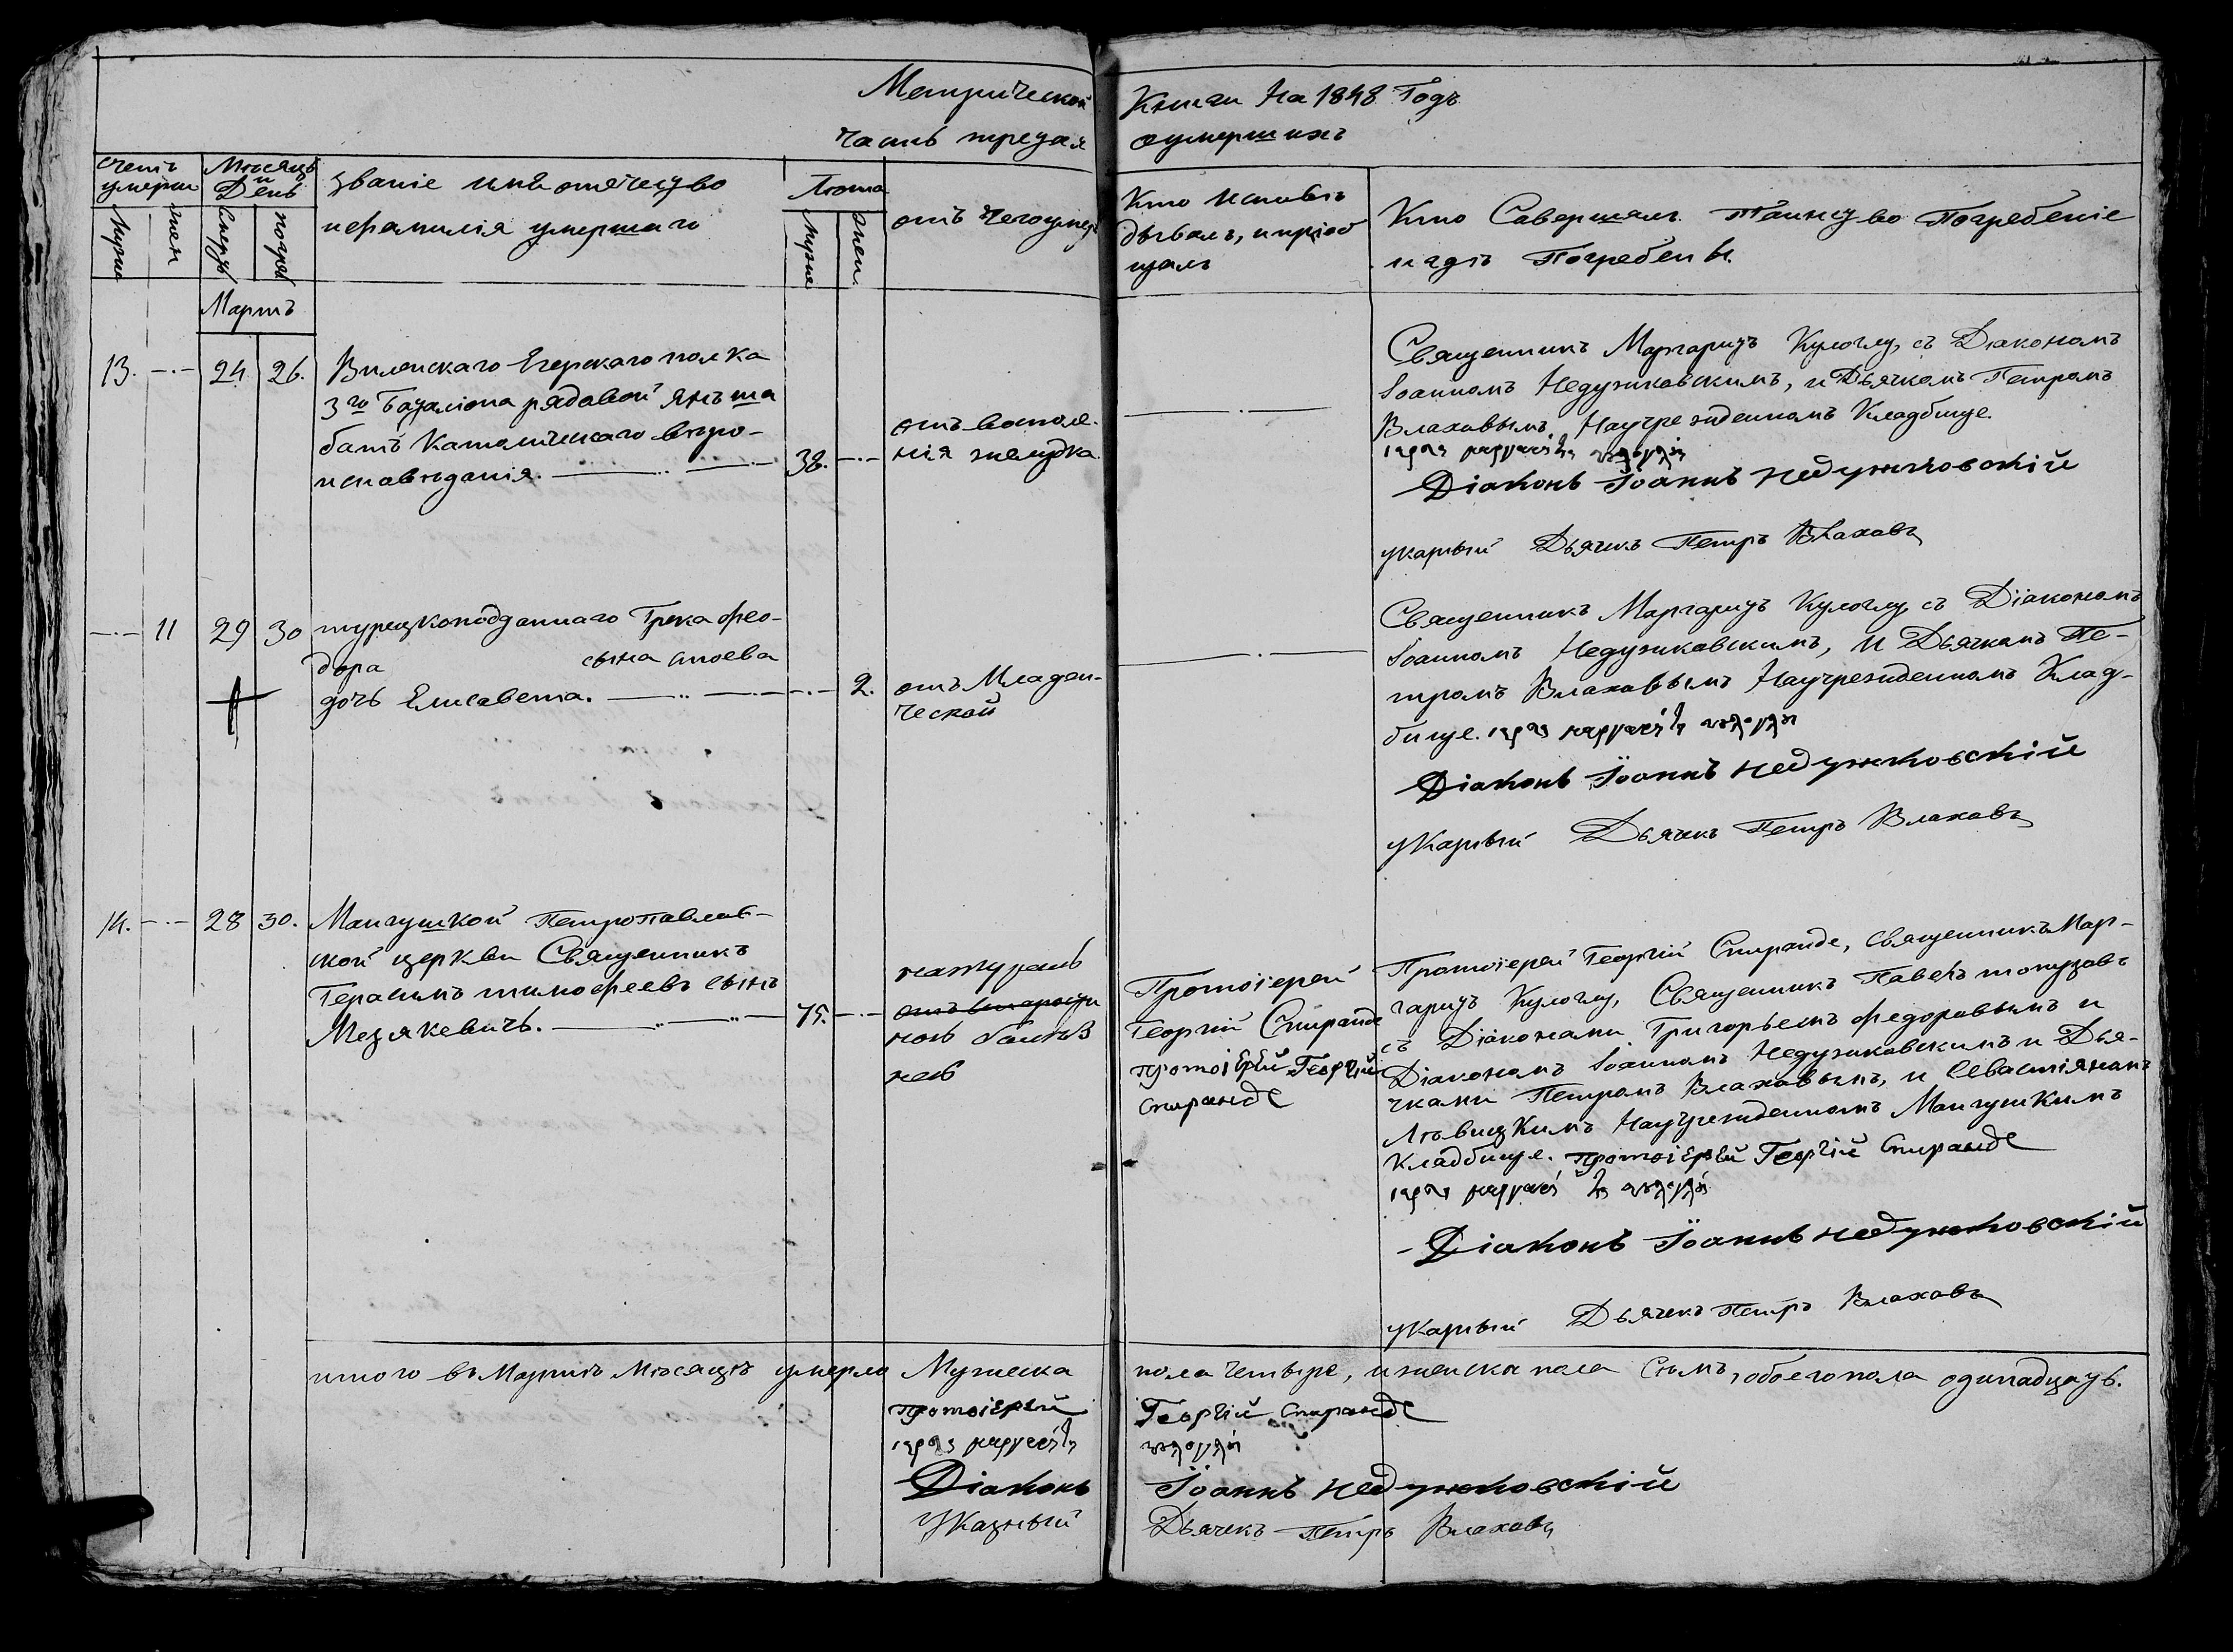 Метрической Книги На 1848 Годъ
Часть третая оумершихъ
счетъ умерши
Мужс
жен
Месяцъ и День
Смерт
погре
званіе имя отечество
ифамилія умершаго
Лета
мужс
жен
отъ Чегоумер
Кто Исповѣ
дывалъ, ипріоб
щалъ
Кто Савершалъ Таинство Погребеніе
игдѣ Погребены.
Мартъ
13. 24 26.
Виленскаго Егерскаго полка
3го Баталіона рядовой Янъ
батъ Католическаго веро-
исповѣданія.
38.
отъ воспале-
нія желудка
Священникъ Маргаритъ Кулоглу, съ Діакономъ
Іоанномъ Недужковскимъ, и Дьячкомъ Петромъ
Влаховымъ Научрежденномъ Кладбище.
Діаконъ Іоаннъ недужковскій
указный Дьячекъ Петръ Влаховъ
11 29 30
турецкоподданнаго Грека Фео-
дора сына стоева
дочь Елисавета.
2.
отъ Младен-
ческой
Священникъ Маргаритъ Кулоглу, съ Діакономъ
Іоанномъ Недужковскимъ, И Дьячкомъ Пе-
тромъ Влаховымъ Научрежденномъ Клад-
бище.
Діаконъ Іоаннъ недужковскій
уКазный Дьячекъ Петръ Влаховъ
14. 28 30.
Мангушкой Петропавлов-
ской церкви Священникъ
Герасимъ тимофеевъ сынъ
Мезякевичъ.
75.
натураль
отъ старости
ною болѣз
нею
Протоіерей
Георгій Спиранде
протоіерей Георгій
Спиранде
Протоіерей Георгій Спиранде, священникъ Мар-
гаритъ Кулоглу, Священникъ Павелъ топузовъ
съ Діаконами Григорьемъ Федоровымъ и
Діакономъ Іоанномъ Недужковскимъ и Дья-
чками Петромъ Влаховымъ, и Севастіяномъ
Лѣвицкимъ Научрежденномъ МангушКимъ
Кладбище. протоіерей Георгій Спиранде
Діаконъ Іоаннъ недужковскій
уКазный Дьячекъ Петръ Влаховъ
итого въ Мартѣ Мѣсяцѣ умерло Мужеска пола четыре, иженска пола Семь, обоегопола одинадцать.
протоіерей Георгій Спиранде
Діаконъ Іоаннъ недужковскій
УКазный Дьячекъ Петръ Влаховъ